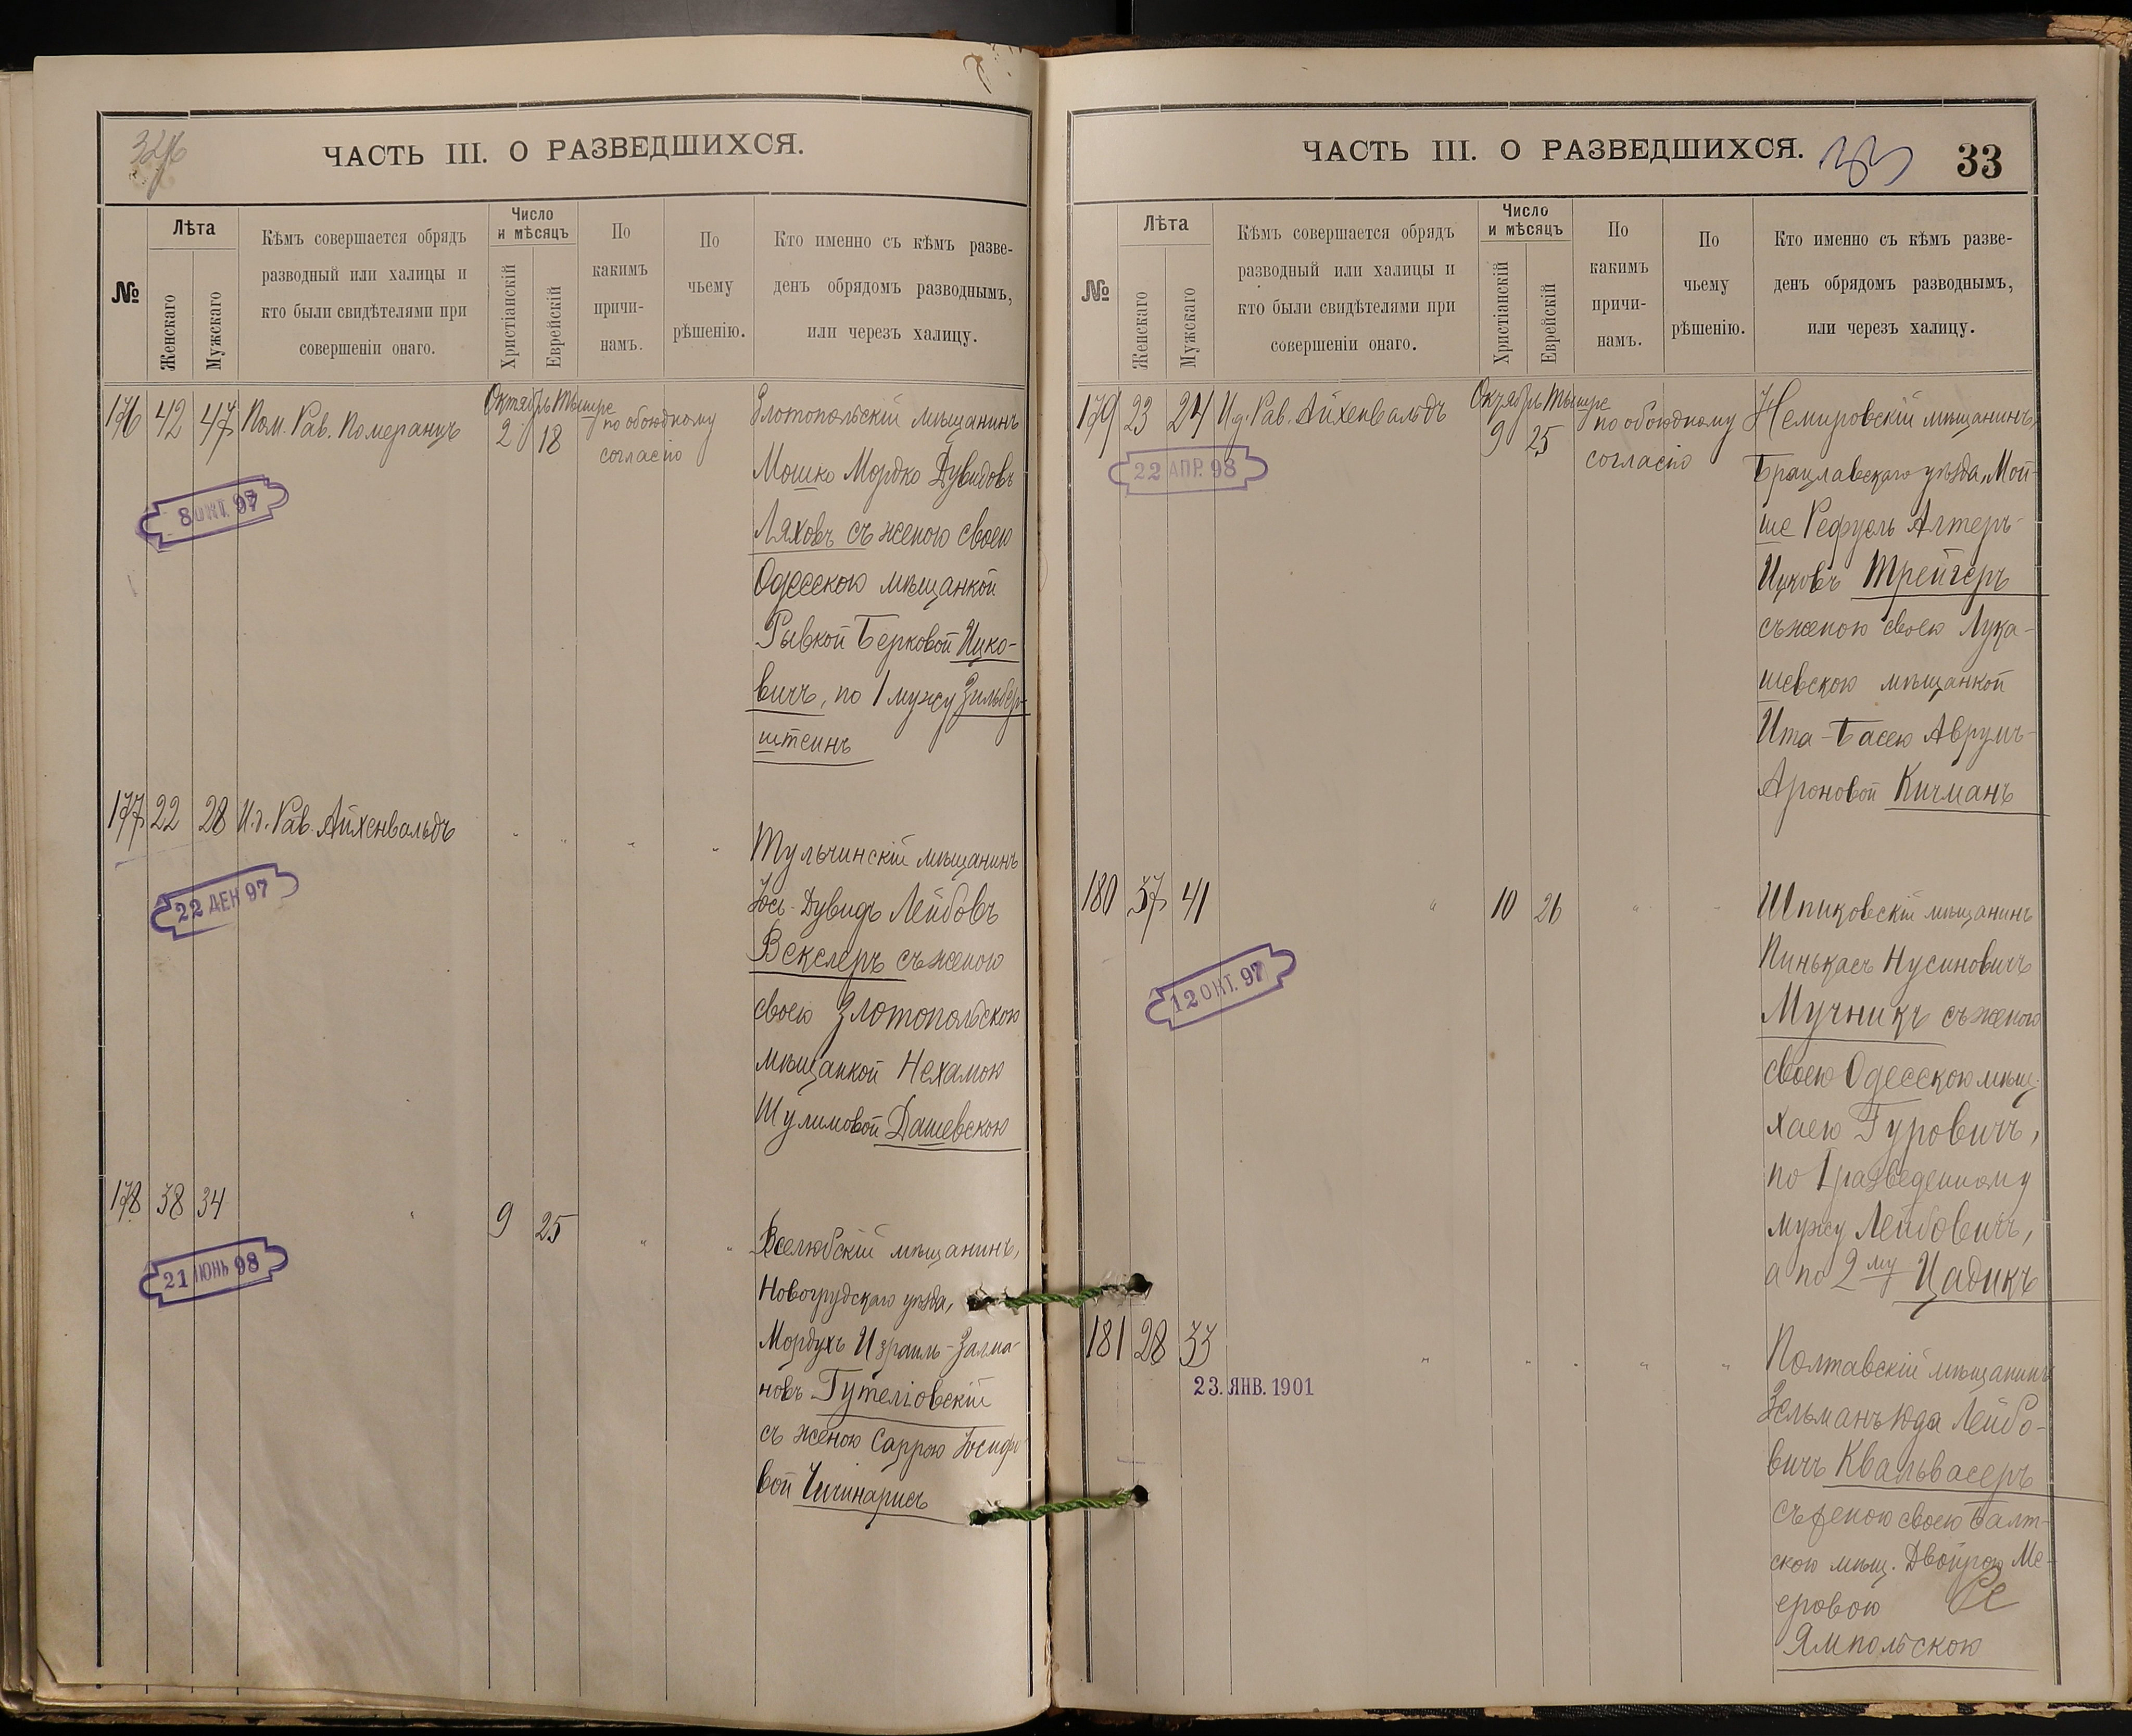 ЧАСТЬ III. О РАЗВЕДШИХСЯ.
№
Лѣта
Женскаго
Мужскаго
Кѣмъ совершается обрядъ
разводный или халицы и
кто были свидѣтелями при
совершеніи онаго.
Число
и мѣсяцъ
Христіанскій
Еврейскій
По
какимъ
причи-
намъ.
По
чьему
рѣшенію.
Кто именно съ кѣмъ разве-
денъ обрядомъ разводнымъ,
или черезъ халицу.
176 42 47 Пом. Рав. Померанцъ
Октябрь Тишре
2 18
по обоюдному
согласію
Златопольскій мѣщанинъ
Мошко Мордко Дувидовъ
Ляховъ съ женою своею
Одесскою мѣщанкой
Рывкой Берковой Ицко-
вичъ, по 1 мужу Зильбер-
штейнъ
8 ОКТ. 97
177 22 28 И.д. Рав. Айхенвальдъ " " " "
Тульчинскій мѣщанинъ
Іось-Дувидъ Лейбовъ
Векслеръ съ женою
своею Златопольскою
мѣщанкой Нехамою
Шулимовой Дашевскою
22 ДЕК 97
178 38 34 " 9 25 " "
Вселюбскій мѣщанинъ,
Новогрудскаго уѣзда,
Мордухъ Израиль-Залма-
новъ Гутеліовскій
съ женою Саррою Іосифо-
вой
21 ІЮНЬ 98
ЧАСТЬ III. О РАЗВЕДШИХСЯ. 33 33
№
Лѣта
Женскаго
Мужскаго
Кѣмъ совершается обрядъ
разводный или халицы и
кто были свидѣтелями при
совершеніи онаго.
Число
и мѣсяцъ
Христіанскій
Еврейскій
По
какимъ
причи-
намъ.
По
чьему
рѣшенію.
Кто именно съ кѣмъ разве-
денъ обрядомъ разводнымъ,
или черезъ халицу.
179 23 24 И.д. Рав. Айхенвальдъ
Октябрь Тишре
9 25
по обоюдному
согласію
Немировскій мѣщанинъ,
Брацлавскаго уѣзда, Мой-
ше Рефуель Алтеръ-
Ицковъ Трейгеръ
съ женою своею Лука-
шевскою мѣщанкой
Ита-Басею Аврумъ-
Ароновой Кичманъ
22 АПР. 98
180 37 41 " 10 26 " "
Шпиковскій мѣщанинъ
Пинькасъ Нусиновичъ
Мучникъ съ женою
своею Одесскою мѣщ.
Хаею Гуровичъ,
по 1 разведенному
мужу Лейбовичъ,
а по 2му Цадикъ
12 ОКТ. 97
181 28 33 " " " " "
Полтавскій мѣщанинъ
Зельманъ Юда Лейбо-
вичъ Квальвасеръ
съ женою своею Балт-
скою мѣщ. Двойрою Ме-
еровою
Ямпольскою
23. ЯНВ. 1901